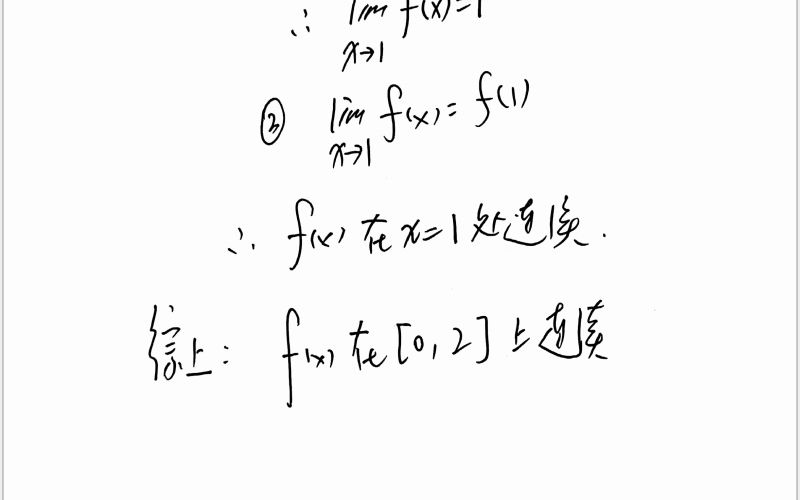 ∴ lim f(x)=1
x→1
③ lim f(x)= f(1)
x→1
∴ f(x) 在 x=1 处连续.
综上: f(x) 在 [0,2] 上连续